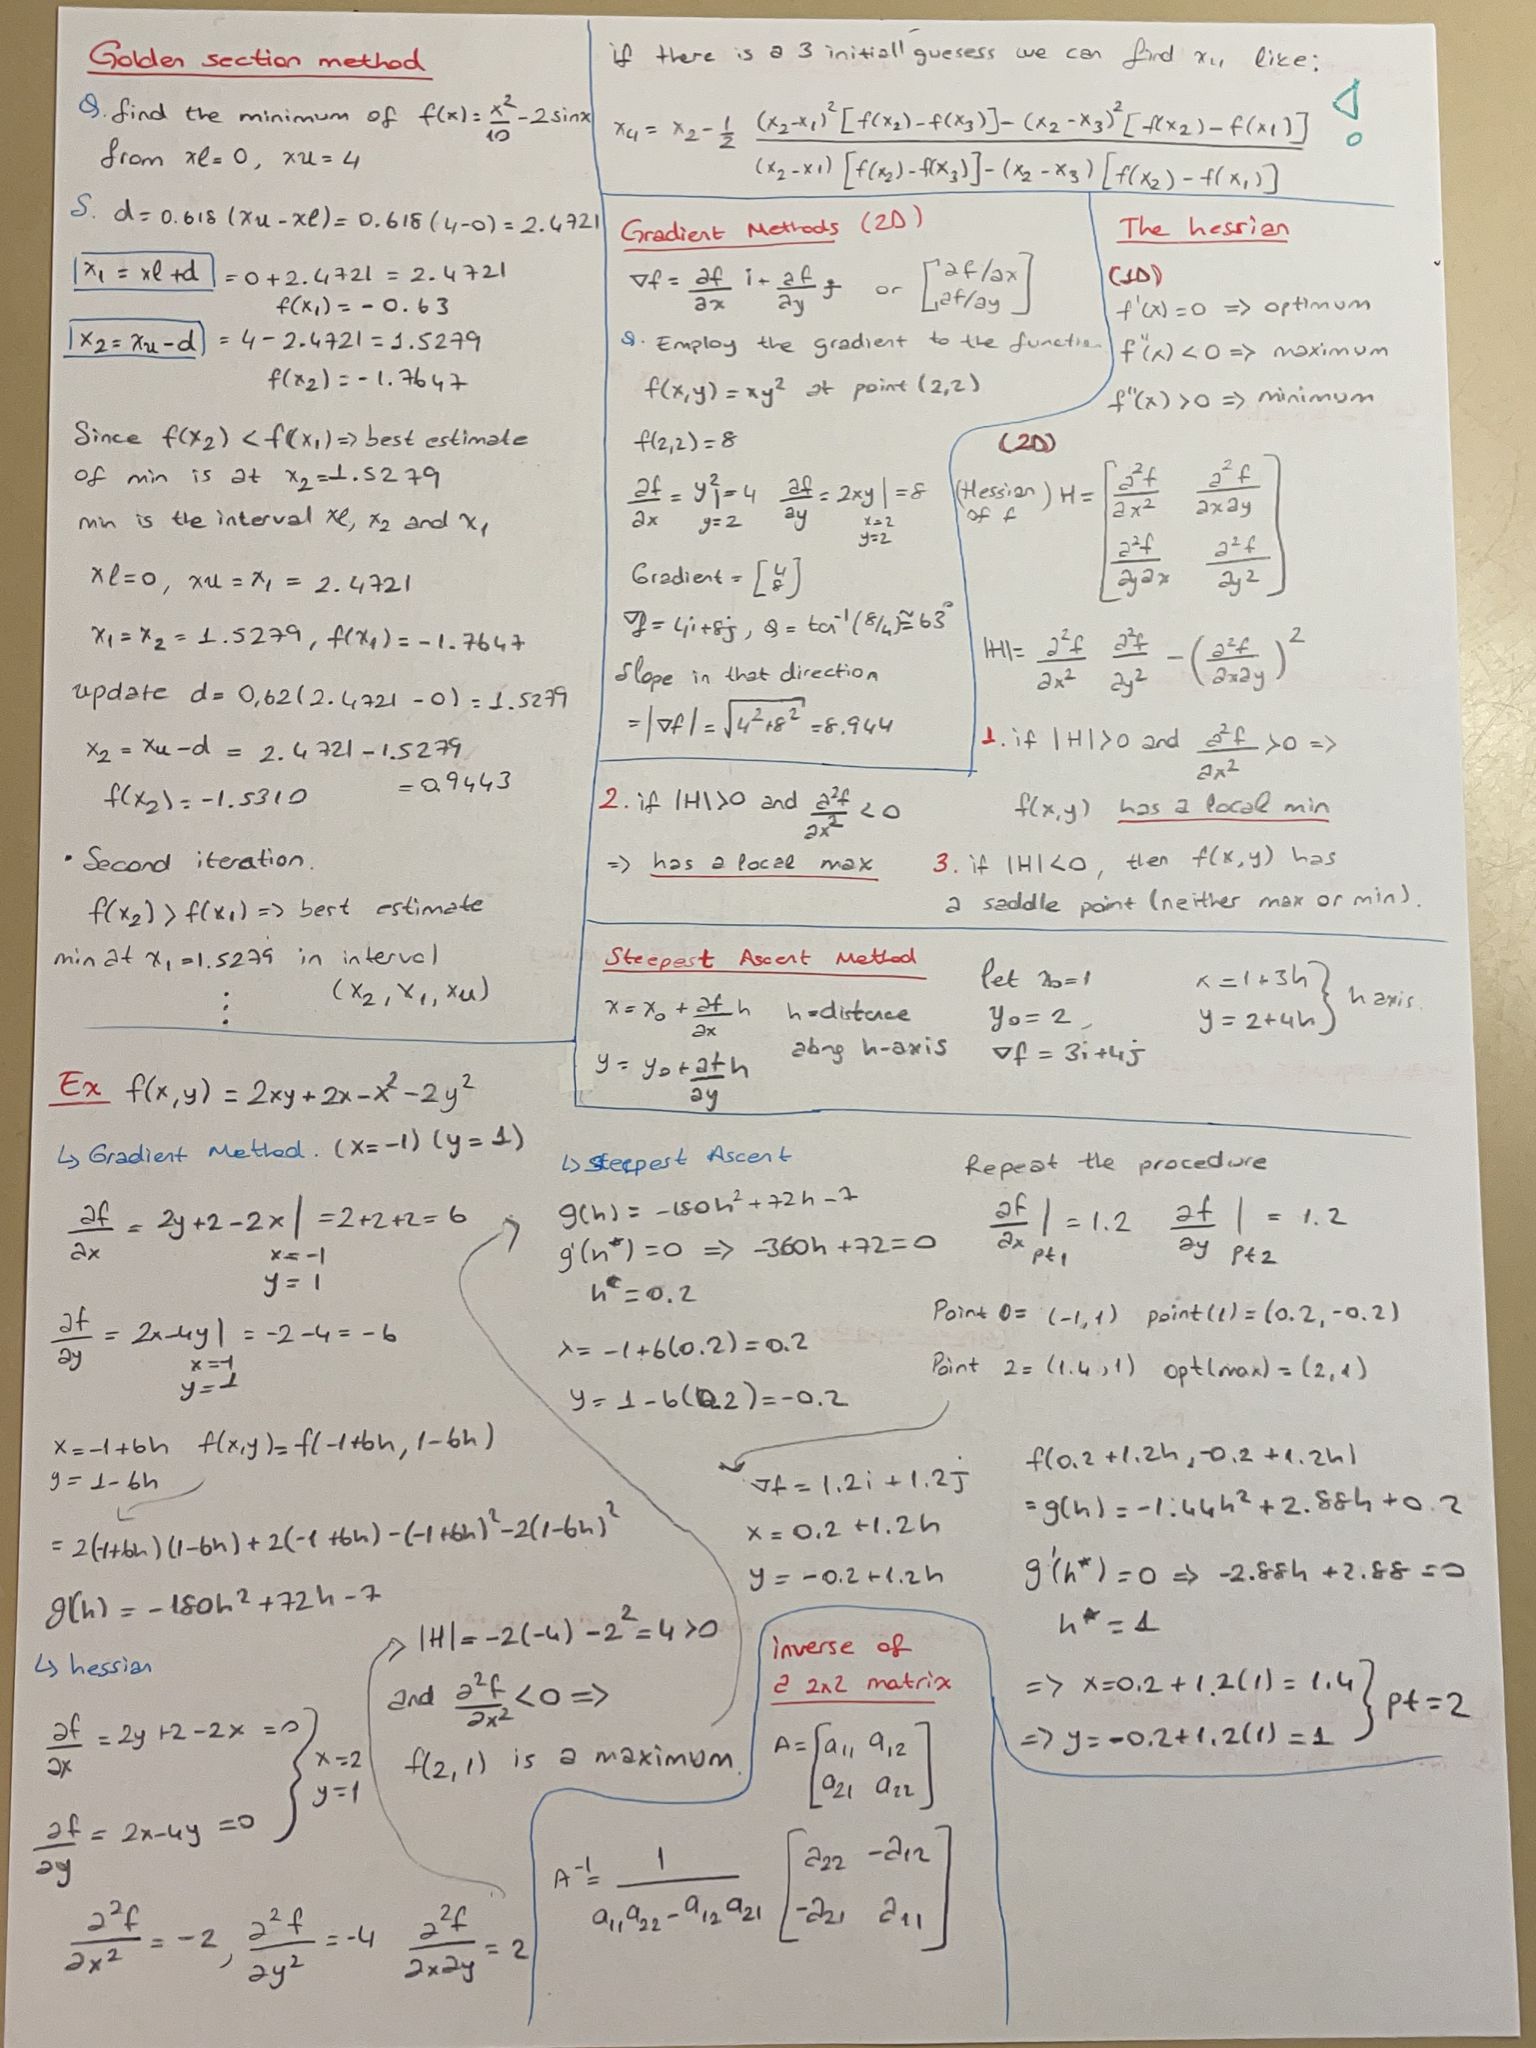 Golden section method
Q. find the minimum of f(x)=x²/10-2sinx
from xl=0, xu=4
S. d=0.618(xu-xl)=0.618(4-0)=2.4721
x₁=xl+d =0+2.4721=2.4721
f(x₁)=-0.63
x₂=xu-d =4-2.4721=1.5279
f(x₂)=-1.7647
Since f(x₂)<f(x₁)=>best estimate
of min is at x₂=1.5279
min is the interval xl, x₂ and x₁
xl=0, xu=x₁=2.4721
x₁=x₂=1.5279, f(x₁)=-1.7647
update d=0,62(2.4721-0)=1.5279
x₂=xu-d=2.4721-1.5279
=0.9443
f(x₂)=-1.5310
• Second iteration.
f(x₂)>f(x₁)=>best estimate
min at x₁=1.5279 in interval
(x₂,x₁,xu)
⋮
if there is a 3 initiall guesess we can find x₄ like:
x₄=x₂-1/2 (x₂-x₁)²[f(x₂)-f(x₃)]-(x₂-x₃)²[f(x₂)-f(x₁)] / (x₂-x₁)[f(x₂)-f(x₃)]-(x₂-x₃)[f(x₂)-f(x₁)]
!
Gradient Methods (2D)
∇f=∂f/∂x i+∂f/∂y j or [∂f/∂x ∂f/∂y]
Q. Employ the gradient to the function
f(x,y)=xy² at point (2,2)
f(2,2)=8
∂f/∂x=y²|=4 ∂f/∂y=2xy|=8
y=2 x=2
y=2
Gradient=[4 8]
∇f=4i+8j, θ=tan⁻¹(8/4)≅63°
Slope in that direction
=|∇f|=√4²+8²=8.944
The hessian
(1D)
f'(x)=0 => optimum
f"(x)<0 => maximum
f"(x)>0 => minimum
(2D)
(Hessian of f) H=[∂²f/∂x² ∂²f/∂x∂y
∂²f/∂y∂x ∂²f/∂y²]
|H|=∂²f/∂x² ∂²f/∂y²-(∂²f/∂x∂y)²
1. if |H|>0 and ∂²f/∂x²>0 =>
f(x,y) has a local min
2. if |H|>0 and ∂²f/∂x²<0
=> has a local max
3. if |H|<0, then f(x,y) has
a saddle point (neither max or min).
Steepest Ascent Method
x=x₀+∂f/∂x h h=distance
y=y₀+∂f/∂y h along h-axis
let x₀=1
y₀=2,
∇f=3i+4j
x=1+3h
y=2+4h} h axis.
Ex f(x,y)=2xy+2x-x²-2y²
↳ Gradient Method. (x=-1) (y=1)
∂f/∂x=2y+2-2x|=2+2+2=6
x=-1
y=1
∂f/∂y=2x-4y|=-2-4=-6
x=-1
y=1
x=-1+6h f(x,y)=f(-1+6h,1-6h)
y=1-6h
=2(-1+6h)(1-6h)+2(-1+6h)-(-1+6h)²-2(1-6h)²
g(h)=-180h²+72h-7
↳ hessian
∂f/∂x=2y+2-2x=0
∂f/∂y=2x-4y=0
} x=2
y=1
∂²f/∂x²=-2, ∂²f/∂y²=-4 ∂²f/∂x∂y=2
|H|=-2(-4)-2²=4>0
and ∂²f/∂x²<0=>
f(2,1) is a maximum.
↳ Steepest Ascent
g(h)=-180h²+72h-7
g'(h*)=0 => -360h+72=0
h*=0.2
x=-1+6(0.2)=0.2
y=1-6(0.2)=-0.2
Repeat the procedure
∂f/∂x|pt1=1.2 ∂f/∂y|pt2=1.2
Point 0=(-1,1) point(1)=(0.2,-0.2)
Point 2=(1.4,1) opt(max)=(2,1)
∇f=1.2i+1.2j
x=0.2+1.2h
y=-0.2+1.2h
f(0.2+1.2h,-0.2+1.2h)
=g(h)=-1.44h²+2.88h+0.2
g'(h*)=0 => -2.88h+2.88=0
h*=1
=> x=0.2+1.2(1)=1.4
=> y=-0.2+1.2(1)=1
} pt=2
inverse of
a 2x2 matrix
A=[a₁₁ a₁₂
a₂₁ a₂₂]
A⁻¹=1/a₁₁a₂₂-a₁₂a₂₁ [a₂₂ -a₁₂
-a₂₁ a₁₁]